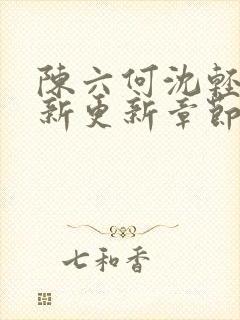 陳六何沈輕
新更新章節
七和香